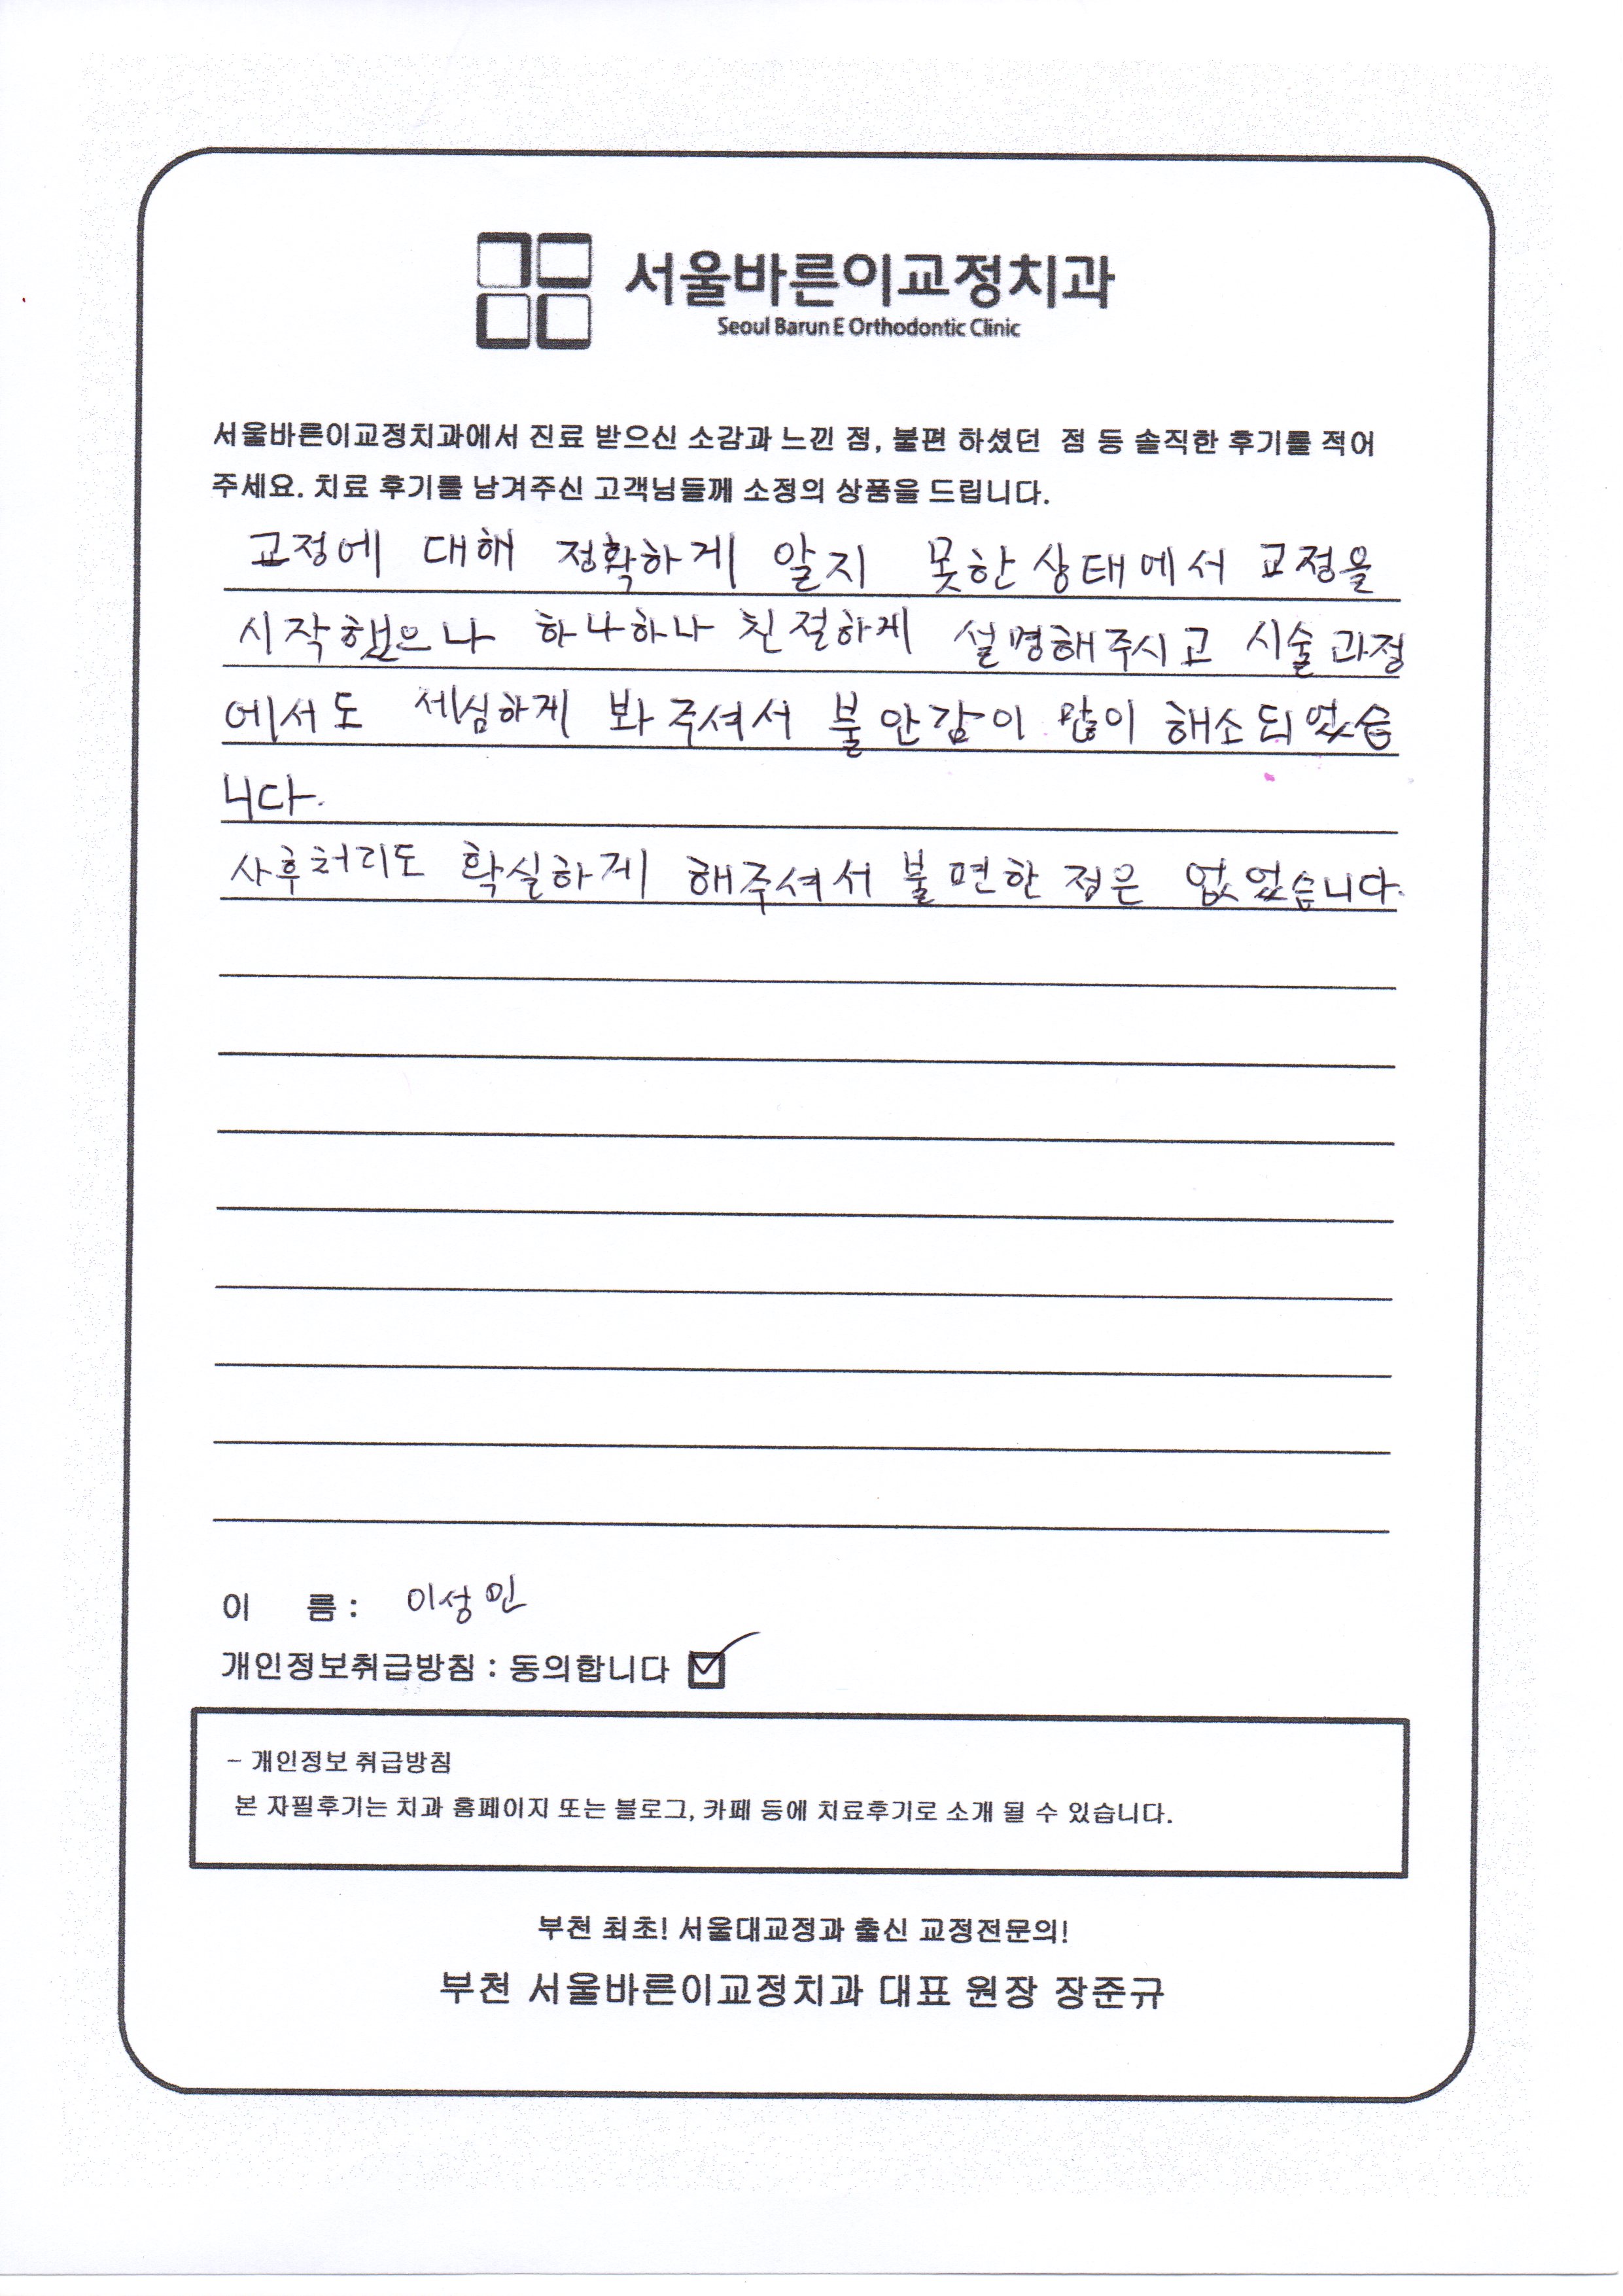 서울바른이교정치과
Seoul Barun E Orthodontic Clinic
서울바른이교정치과에서 진료 받으신 소감과 느낀 점, 불편 하셨던 점 등 솔직한 후기를 적어
주세요. 치료 후기를 남겨주신 고객님들께 소정의 상품을 드립니다.
교정에 대해 정확하게 알지 못한 상태에서 교정을
시작했으나 하나하나 친절하게 설명해주시고 시술 과정
에서도 세심하게 봐주셔서 불안감이 많이 해소되었습
니다.
사후처리도 확실하게 해주셔서 불편한 점은 없었습니다.
이 름 : 이성민
개인정보취급방침 : 동의합니다
- 개인정보 취급방침
본 자필후기는 치과 홈페이지 또는 블로그, 카페 등에 치료후기로 소개 될 수 있습니다.
부천 최초! 서울대교정과 출신 교정전문의!
부천 서울바른이교정치과 대표 원장 장준규